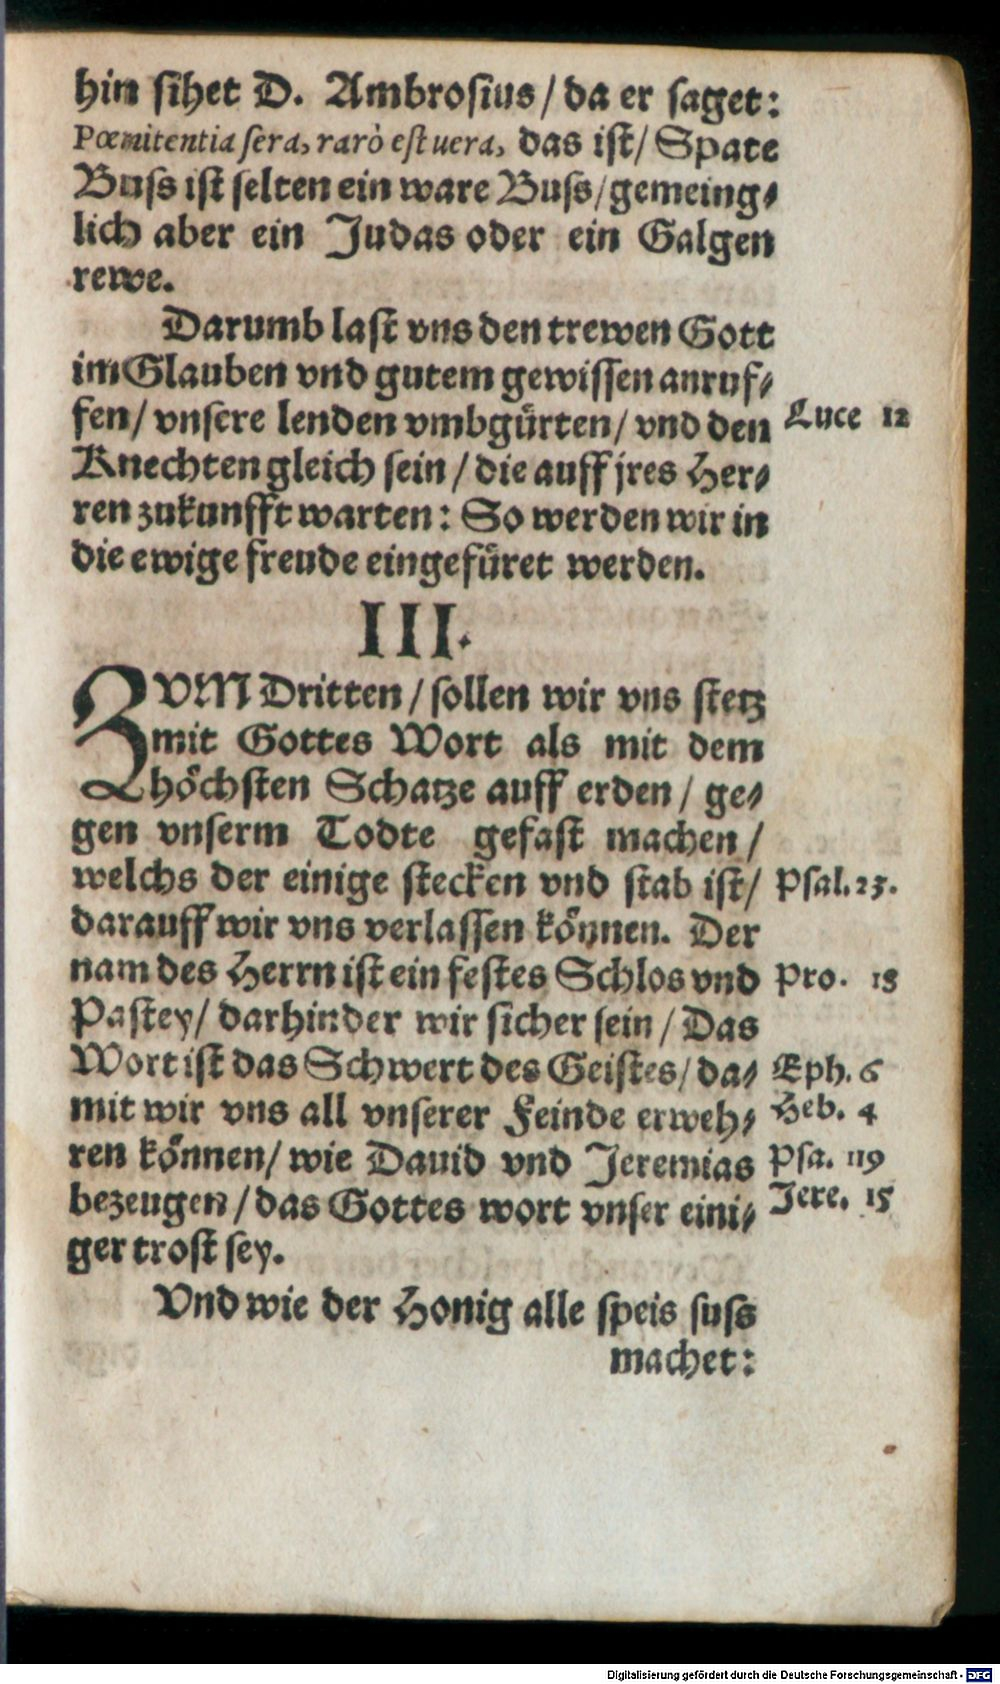 hin sihet D. Ambrosius/ da er saget:
Pœnitentia sera, rarò est uera, das ist/ Spate
Buss ist selten ein ware Buss/ gemeing⸗
lich aber ein Judas oder ein Galgen
rewe.
Darumb last vns den trewen Gott
im Glauben vnd gutem gewissen anruf⸗
fen/ vnsere lenden vmbgürten/ vnd den
Luce 12
Knechten gleich sein/ die auff jres Her⸗
ren zukunfft warten: So werden wir in
die ewige freude eingefüret werden.
III.
ZVM Dritten/ sollen wir vns stetz
mit Gottes Wort als mit dem
höchsten Schatze auff erden/ ge⸗
gen vnserm Todte gefast machen/
welchs der einige stecken vnd stab ist/
Psal. 23.
darauff wir vns verlassen können. Der
nam des Herrn ist ein festes Schlos vnd
Pro. 18
Pastey/ darhinder wir sicher sein/ Das
Wort ist das Schwert des Geistes/ da⸗
Eph. 6
mit wir vns all vnserer Feinde erweh⸗
Heb. 4
ren können/ wie Dauid vnd Jeremias
Psa. 119
bezeugen/ das Gottes wort vnser eini⸗
Jere. 15
ger trost sey.
Vnd wie der Honig alle speis suss
machet:
Digitalisierung gefördert durch die Deutsche Forschungsgemeinschaft - DFG